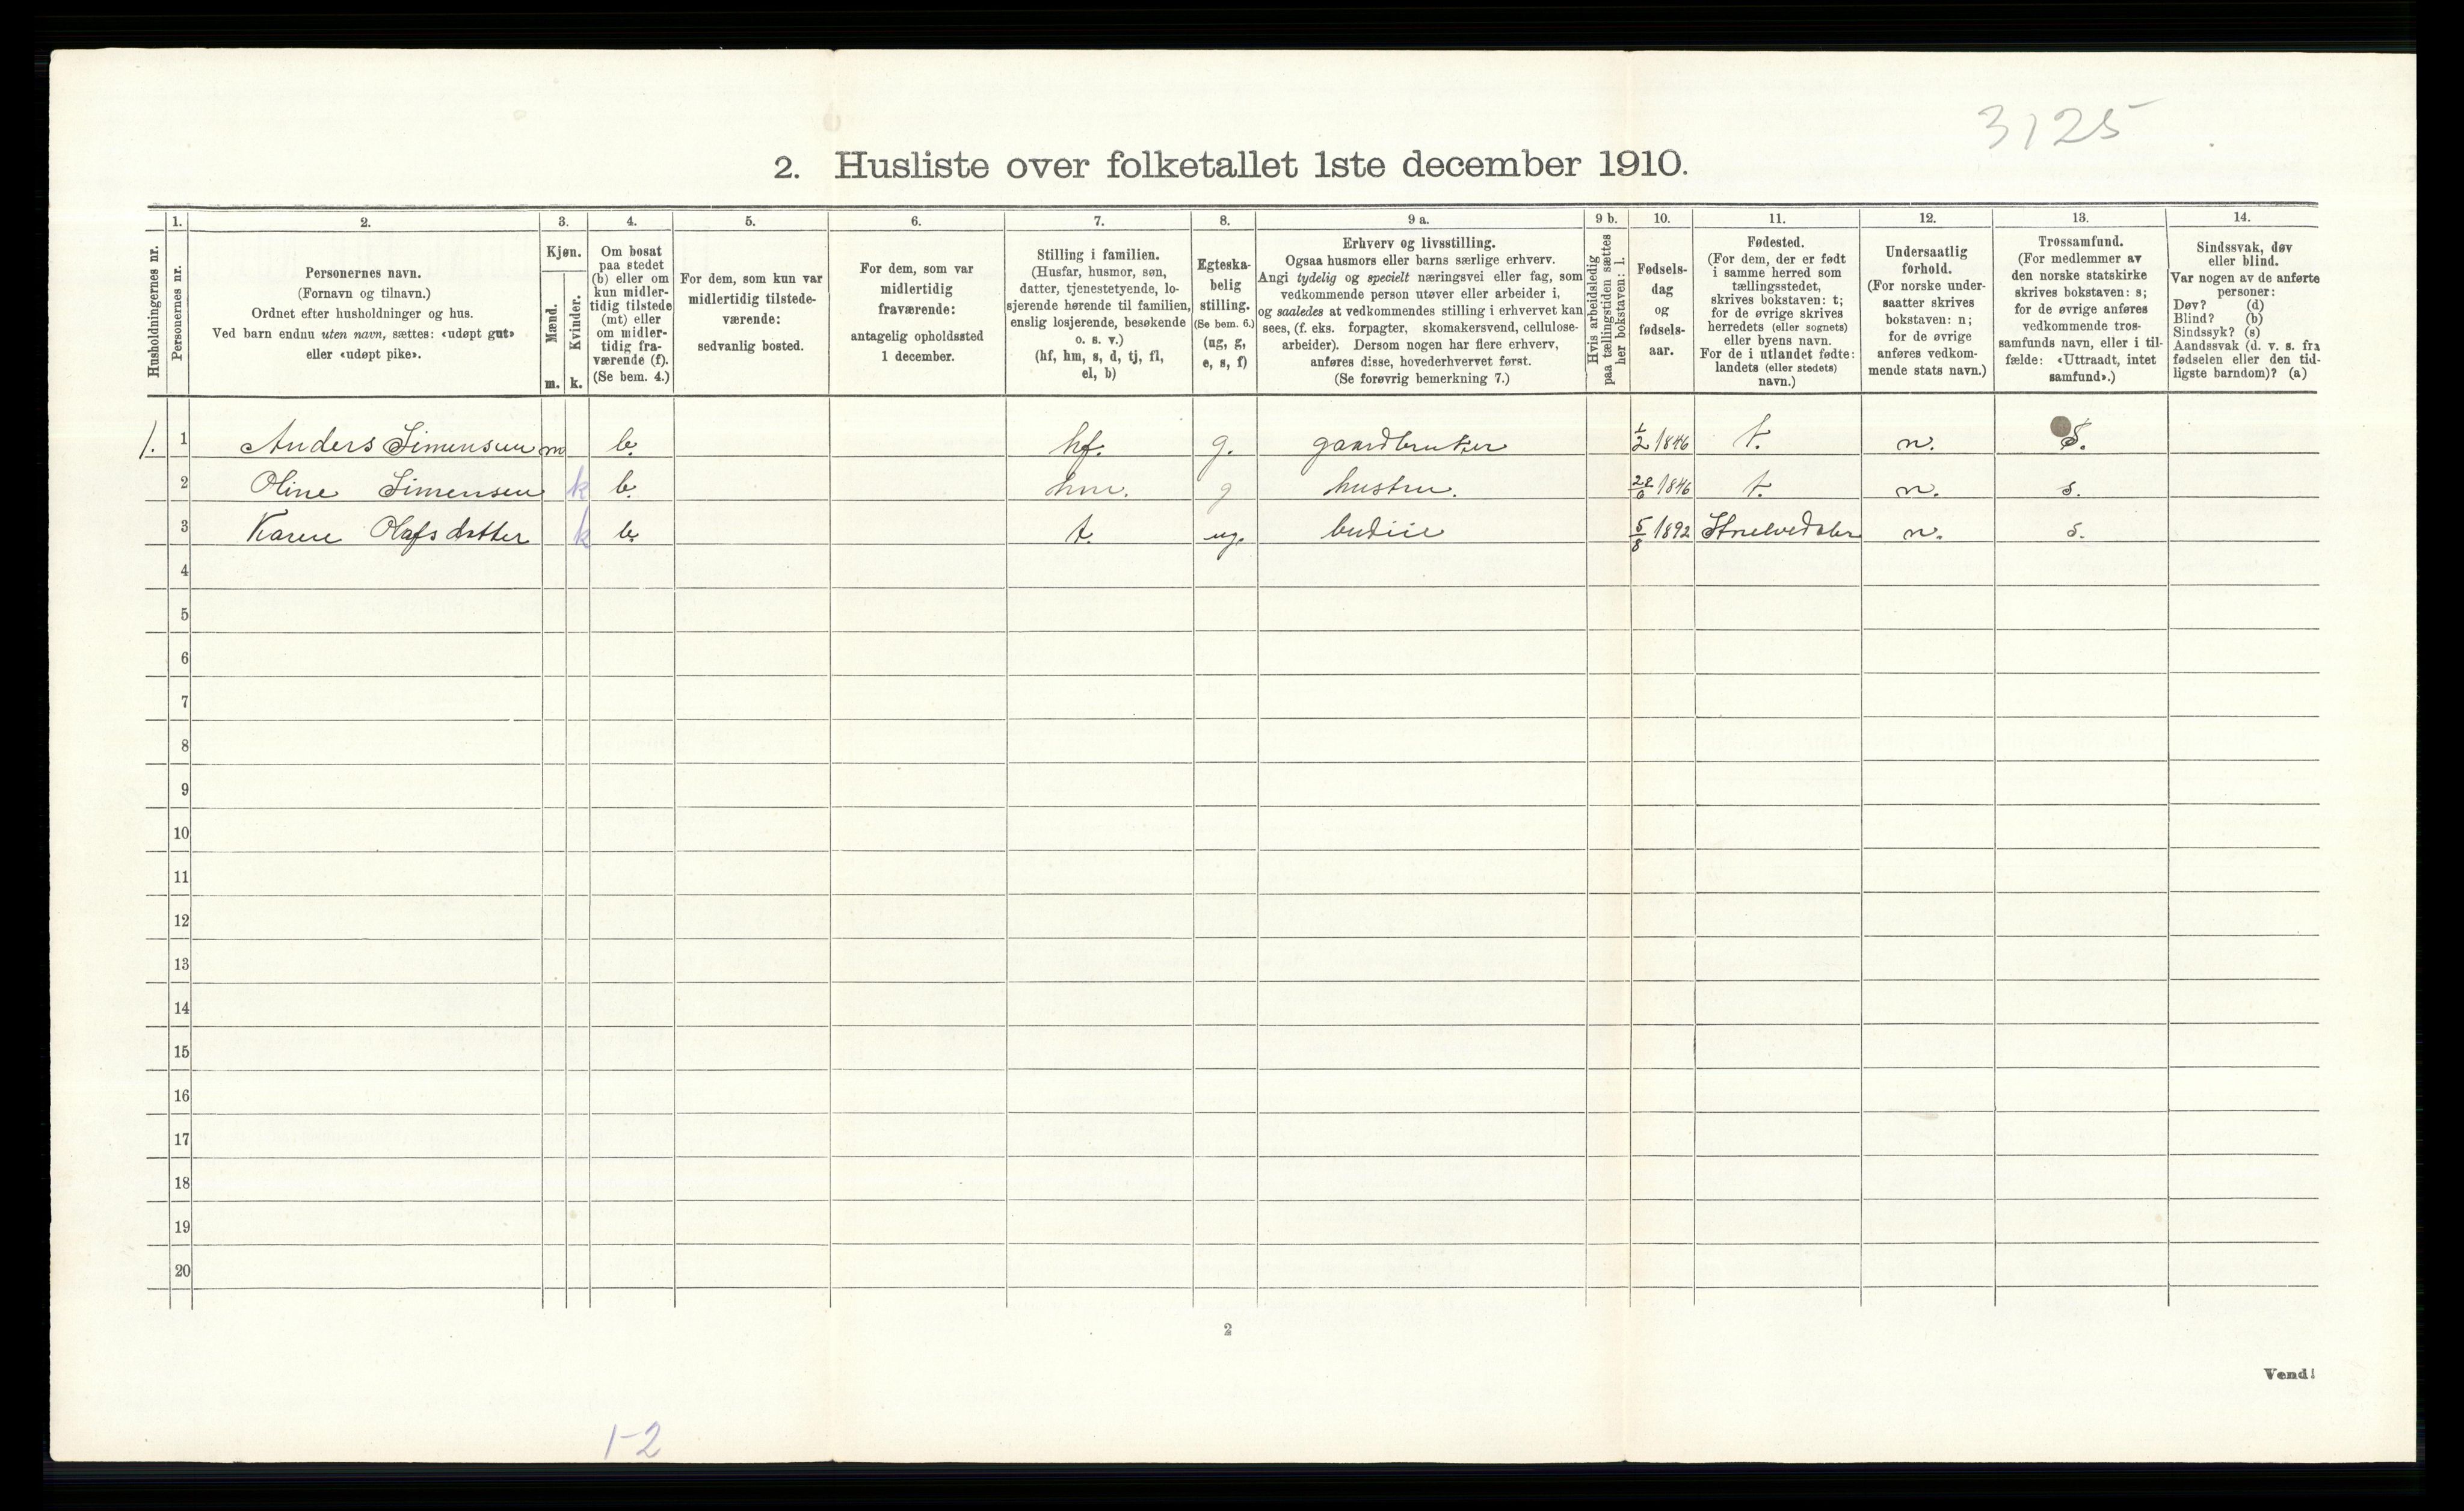 3125
2. Husliste over folketallet 1ste december 1910.
1. 2. 3. 4. 5. 6. 7. 8. 9 a. 9 b. 10. 11. 12. 13. 14.
Husholdningernes nr.
Personernes nr.
Personernes navn.
(Fornavn og tilnavn.)
Ordnet efter husholdninger og hus.
Ved barn endnu uten navn, sættes: «udøpt gut»
eller «udøpt pike».
Kjøn.
Mænd.
Kvinder.
m. k.
Om bosat
paa stedet
(b) eller om
kun midler-
tidig tilstede
(mt) eller
om midler-
tidig fra-
værende (f).
(Se bem. 4.)
For dem, som kun var
midlertidig tilstede-
værende:
sedvanlig bosted.
For dem, som var
midlertidig
fraværende:
antagelig opholdssted
1 december.
Stilling i familien.
(Husfar, husmor, søn,
datter, tjenestetyende, lo-
sjerende hørende til familien,
enslig losjerende, besøkende
o. s. v.)
(hf, hm, s, d, tj, fl,
el, b)
Egteska-
belig
stilling.
(Se bem. 6.)
(ug, g,
e, s, f)
Erhverv og livsstilling.
Ogsaa husmors eller barns særlige erhverv.
Angi tydelig og specielt næringsvei eller fag, som
vedkommende person utøver eller arbeider i,
og saaledes at vedkommendes stilling i erhvervet kan
sees, (f. eks. forpagter, skomakersvend, cellulose-
arbeider). Dersom nogen har flere erhverv,
anføres disse, hovederhvervet først.
(Se forøvrig bemerkning 7.)
Hvis arbeidsledig
paa tællingstiden sættes
her bokstaven: l.
Fødsels-
dag
og
fødsels-
aar.
Fødested.
(For dem, der er født
i samme herred som
tællingsstedet,
skrives bokstaven: t;
for de øvrige skrives
herredets (eller sognets)
eller byens navn.
For de i utlandet fødte:
landets (eller stedets)
navn.)
Undersaatlig
forhold.
(For norske under-
saatter skrives
bokstaven: n;
for de øvrige
anføres vedkom-
mende stats navn.)
Trossamfund.
(For medlemmer av
den norske statskirke
skrives bokstaven: s;
for de øvrige anføres
vedkommende tros-
samfunds navn, eller i til-
fælde: «Uttraadt, intet
samfund».)
Sindssvak, døv
eller blind.
Var nogen av de anførte
personer:
Døv? (d)
Blind? (b)
Sindssyk? (s)
Aandssvak (d. v. s. fra
fødselen eller den tid-
ligste barndom)? (a)
1. 1 Anders Simensen m b. hf. g. gaardbruker 1/2 1846 t. n. S.
2 Oline Simensen k b. hm. g hustru. 1846 t. n. s.
3 Karen Olafsdatter k b. t. ug. budeie 5/8 1892 n. s.
4
5
6
7
8
9
10
11
12
13
14
15
16
17
18
19
20
2
Vend!
1-2